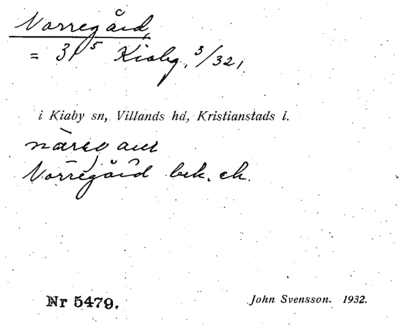 Norregård,
= 31⁵ Kiaby, 3/321,
i Kiaby sn, Villands hd, Kristianstads l.
Norregård bek. ek.
Nr 5479.
John Svensson. 1932.